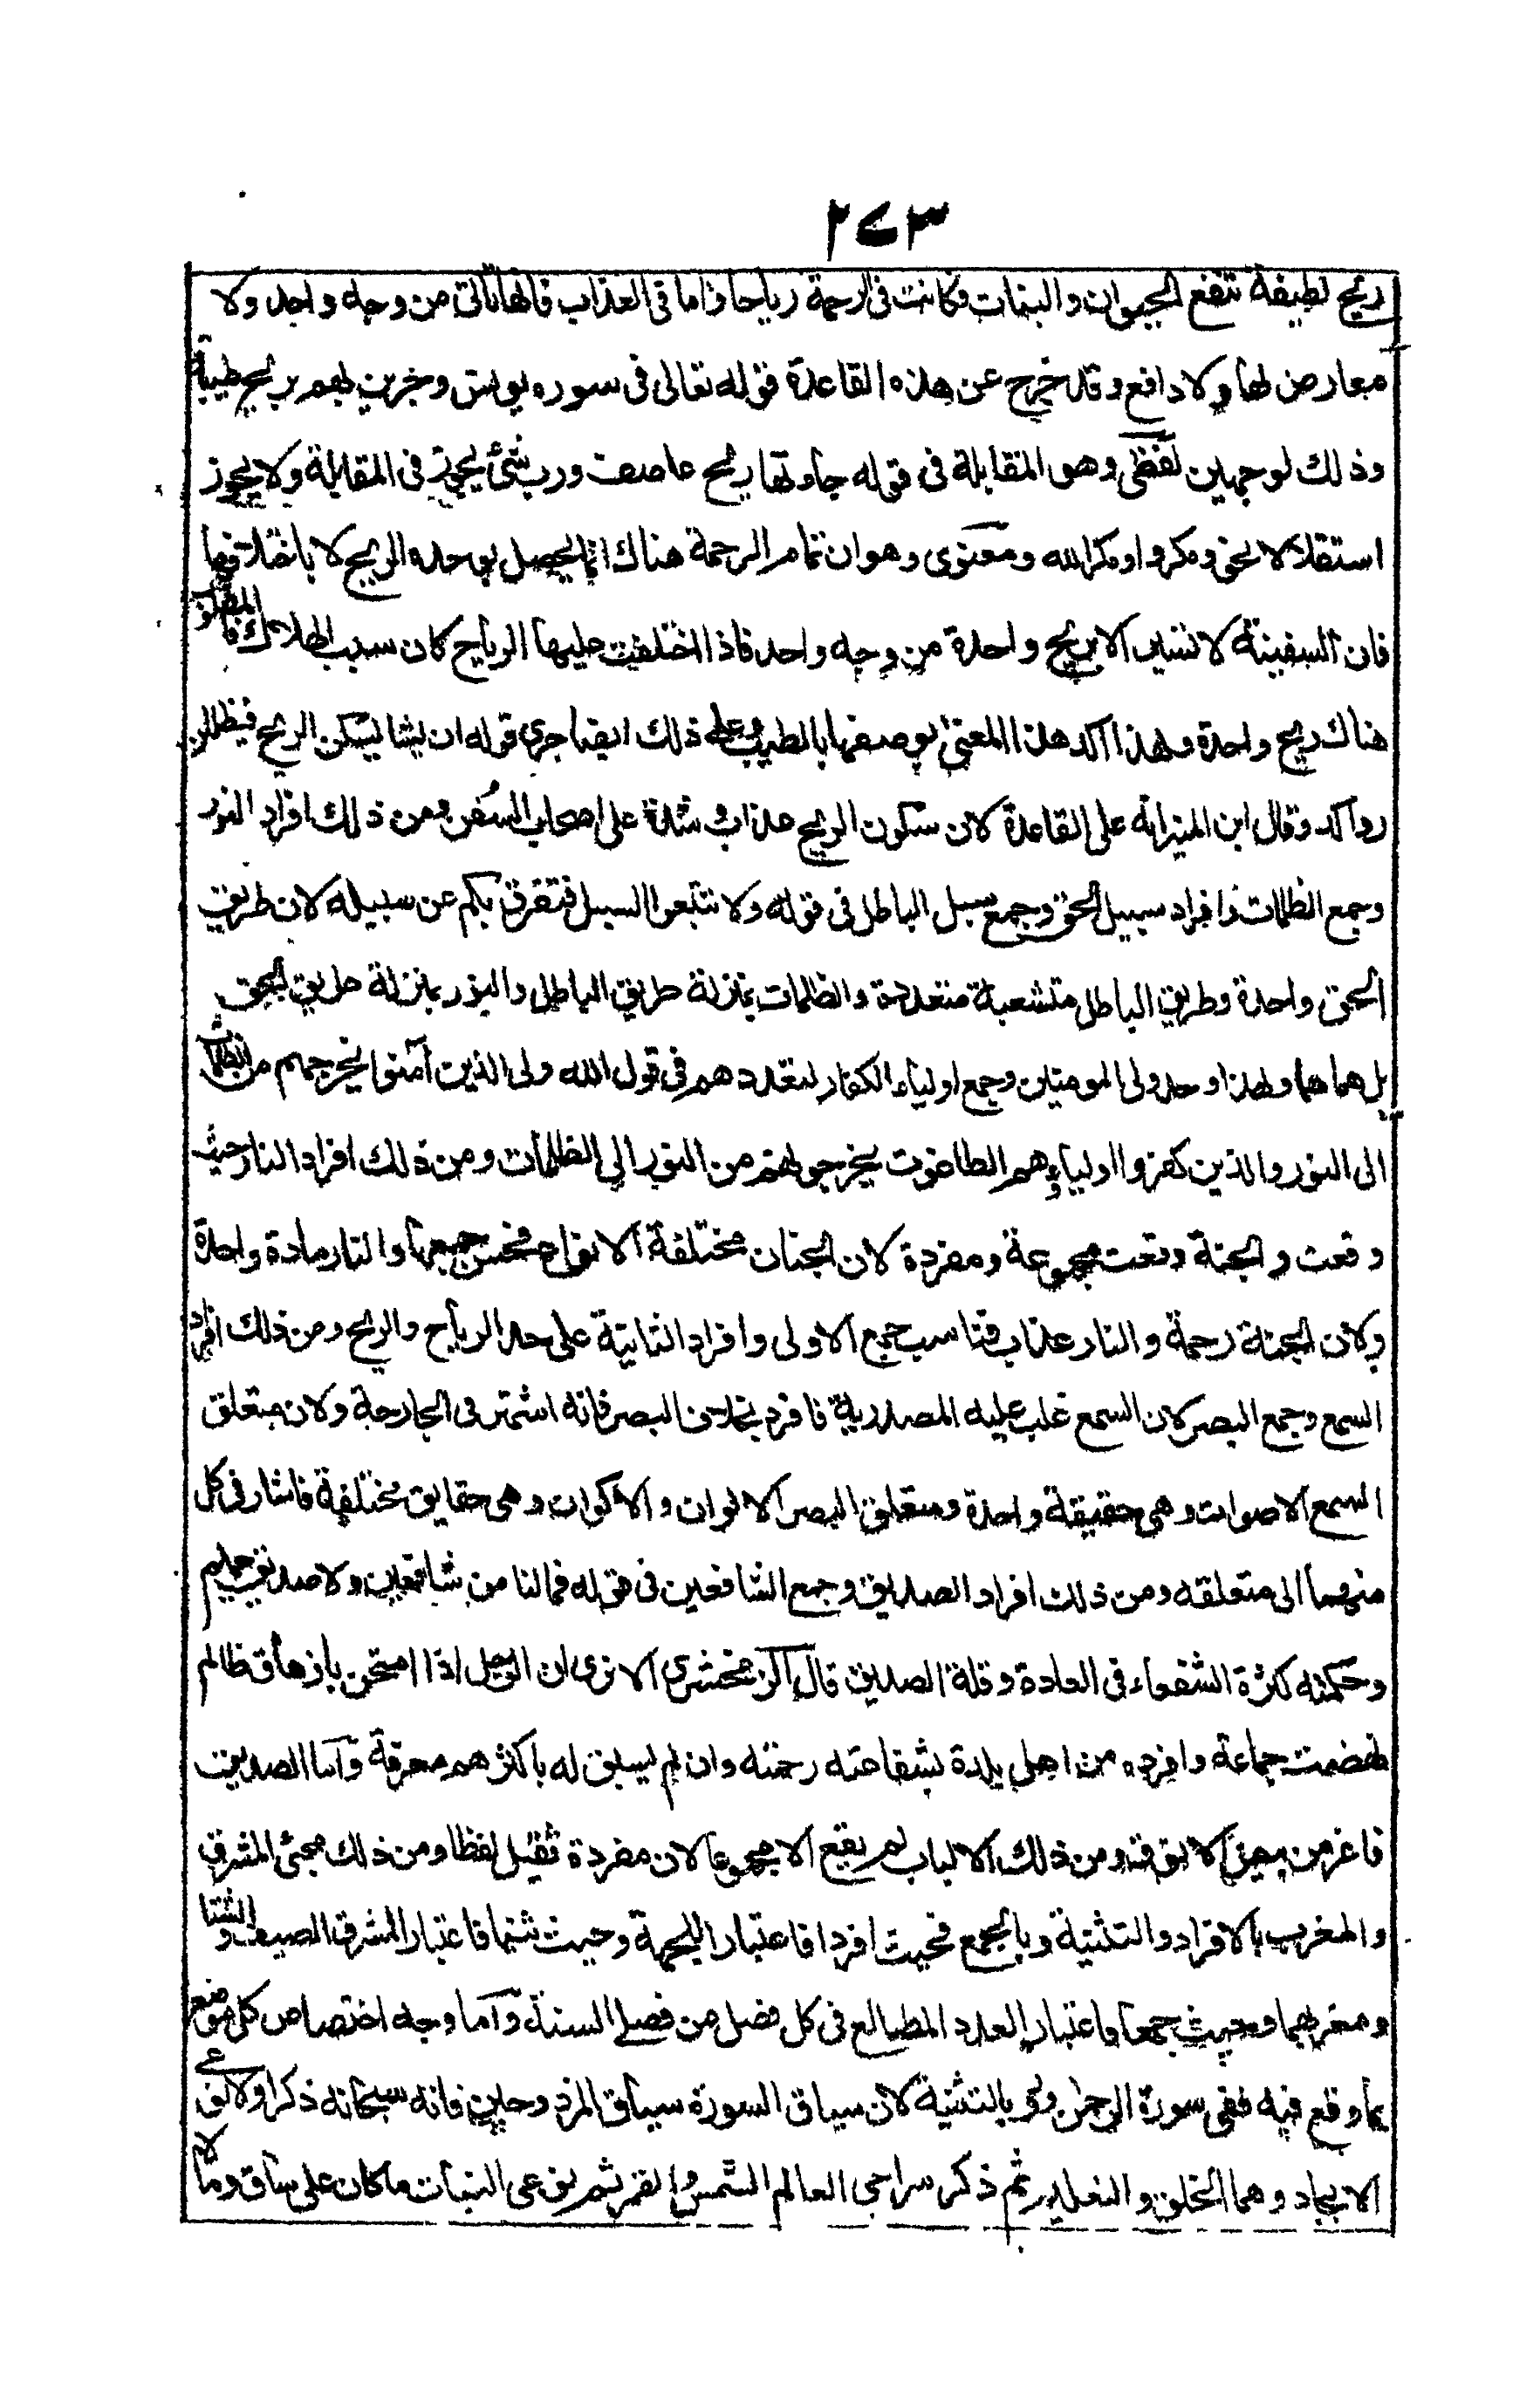 ٢٧٣
ريح لطيفة تنفع الحيوان والنبات فكانت فى الرحمة رياحا واما فى العذاب فانها تاتى من وجه واحد ولا
معارض لها ولا دافع وقد خرج عن هذه القاعدة قوله تعالى فى سورة يونس وجرين بهم بريح طيبة
وذلك لوجهين لفظى وهو المقابلة فى قوله جاءتها ريح عاصف ورب شئ يجوز فى المقابلة ولا يجوز
استقلالا نحو ومكروا ومكر الله ومعنوى وهو ان تمام الرحمة هناك انما يحصل بوحدة الريح لا باختلافها
فان السفينة لا تسير الا بريح واحدة من وجه واحد فاذا اختلفت عليها الرياح كان سبب الهلاك فالمطلوب
هناك ريح واحدة ولهذا اكد هذا المعنى بوصفها بالطيب وعلى ذلك ايضا جرى قوله ان يشا يسكن الريح فيظللن
رواكد وقال ابن المنير انه على القاعدة لان سكون الريح عذاب وشدة على اصحاب السفن ومن ذلك افراد النور
وجمع الظلمات وافراد سبيل الحق وجمع سبل الباطل فى قوله ولا تتبعوا السبل فتفرق بكم عن سبيله لان طريق
الحق واحدة وطريق الباطل متشعبة متعددة والظلمات بمنزلة طريق الباطل والنور بمنزلة طريق الحق
بل هما هما ولهذا وحد ولى المومنين وجمع اولياء الكفار لتعددهم فى قول الله ولى الذين آمنوا يخرجهم من الظلمات
الى النور والذين كفروا اولياؤهم الطاغوت يخرجونهم من النور الى الظلمات ومن ذلك افراد النار حيث
وقعت والجنة وقعت مجموعة ومفردة لان الجنان مختلفة الانواع فحسن جمعها والنار مادة واحدة
ولان الجنة رحمة والنار عذاب فناسب جمع الاولى وافراد الثانية على حد الرياح والريح ومن ذلك افراد
السمع وجمع البصر لان السمع غلب عليه المصدرية فافرد بخلاف البصر فانه اشتهر فى الجارحة ولان متعلق
السمع الاصوات وهى حقيقة واحدة ومتعلق البصر الالوان والاكوان وهى حقايق مختلفة فاشار فى كل
منهما الى متعلقه ومن ذلك افراد الصديق وجمع الشافعين فى قوله فما لنا من شافعين ولا صديق حميم
وحكمته كثرة الشفعاء فى العادة وقلة الصديق قال الزمخشرى الا ترى ان الرجل اذا امتحن بازهاق ظالم
نهضت جماعة وافرده من اهل بلدة بشفاعته رحمته وان لم يسبق له باكثرهم معرفة واما الصديق
فاعز من بيض الانوق ومن ذلك الالباب لم يقع الا مجموعا لان مفردة ثقيل لفظا ومن ذلك مجئ المشرق
والمغرب بالافراد والتثنية وبالجمع فحيث افردا فاعتبار الجهة وحيث ثنيا فاعتبار المشرق الصيف والشتا
ومغربهما وحيث جمعا فاعتبار العدد المطالع فى كل فصل من فصلى السنة واما وجه اختصاص كل موضع
بما وقع فيه ففى سورة الرحمن وقع بالتثنية لان سياق السورة سياق المزدوجين فانه سبحانه ذكر اولا نوعى
الايجاد وهما الخلق والتعليم ثم ذكر سراجى العالم الشمس والقمر ثم نوعى النبات ما كان على ساق وما لا